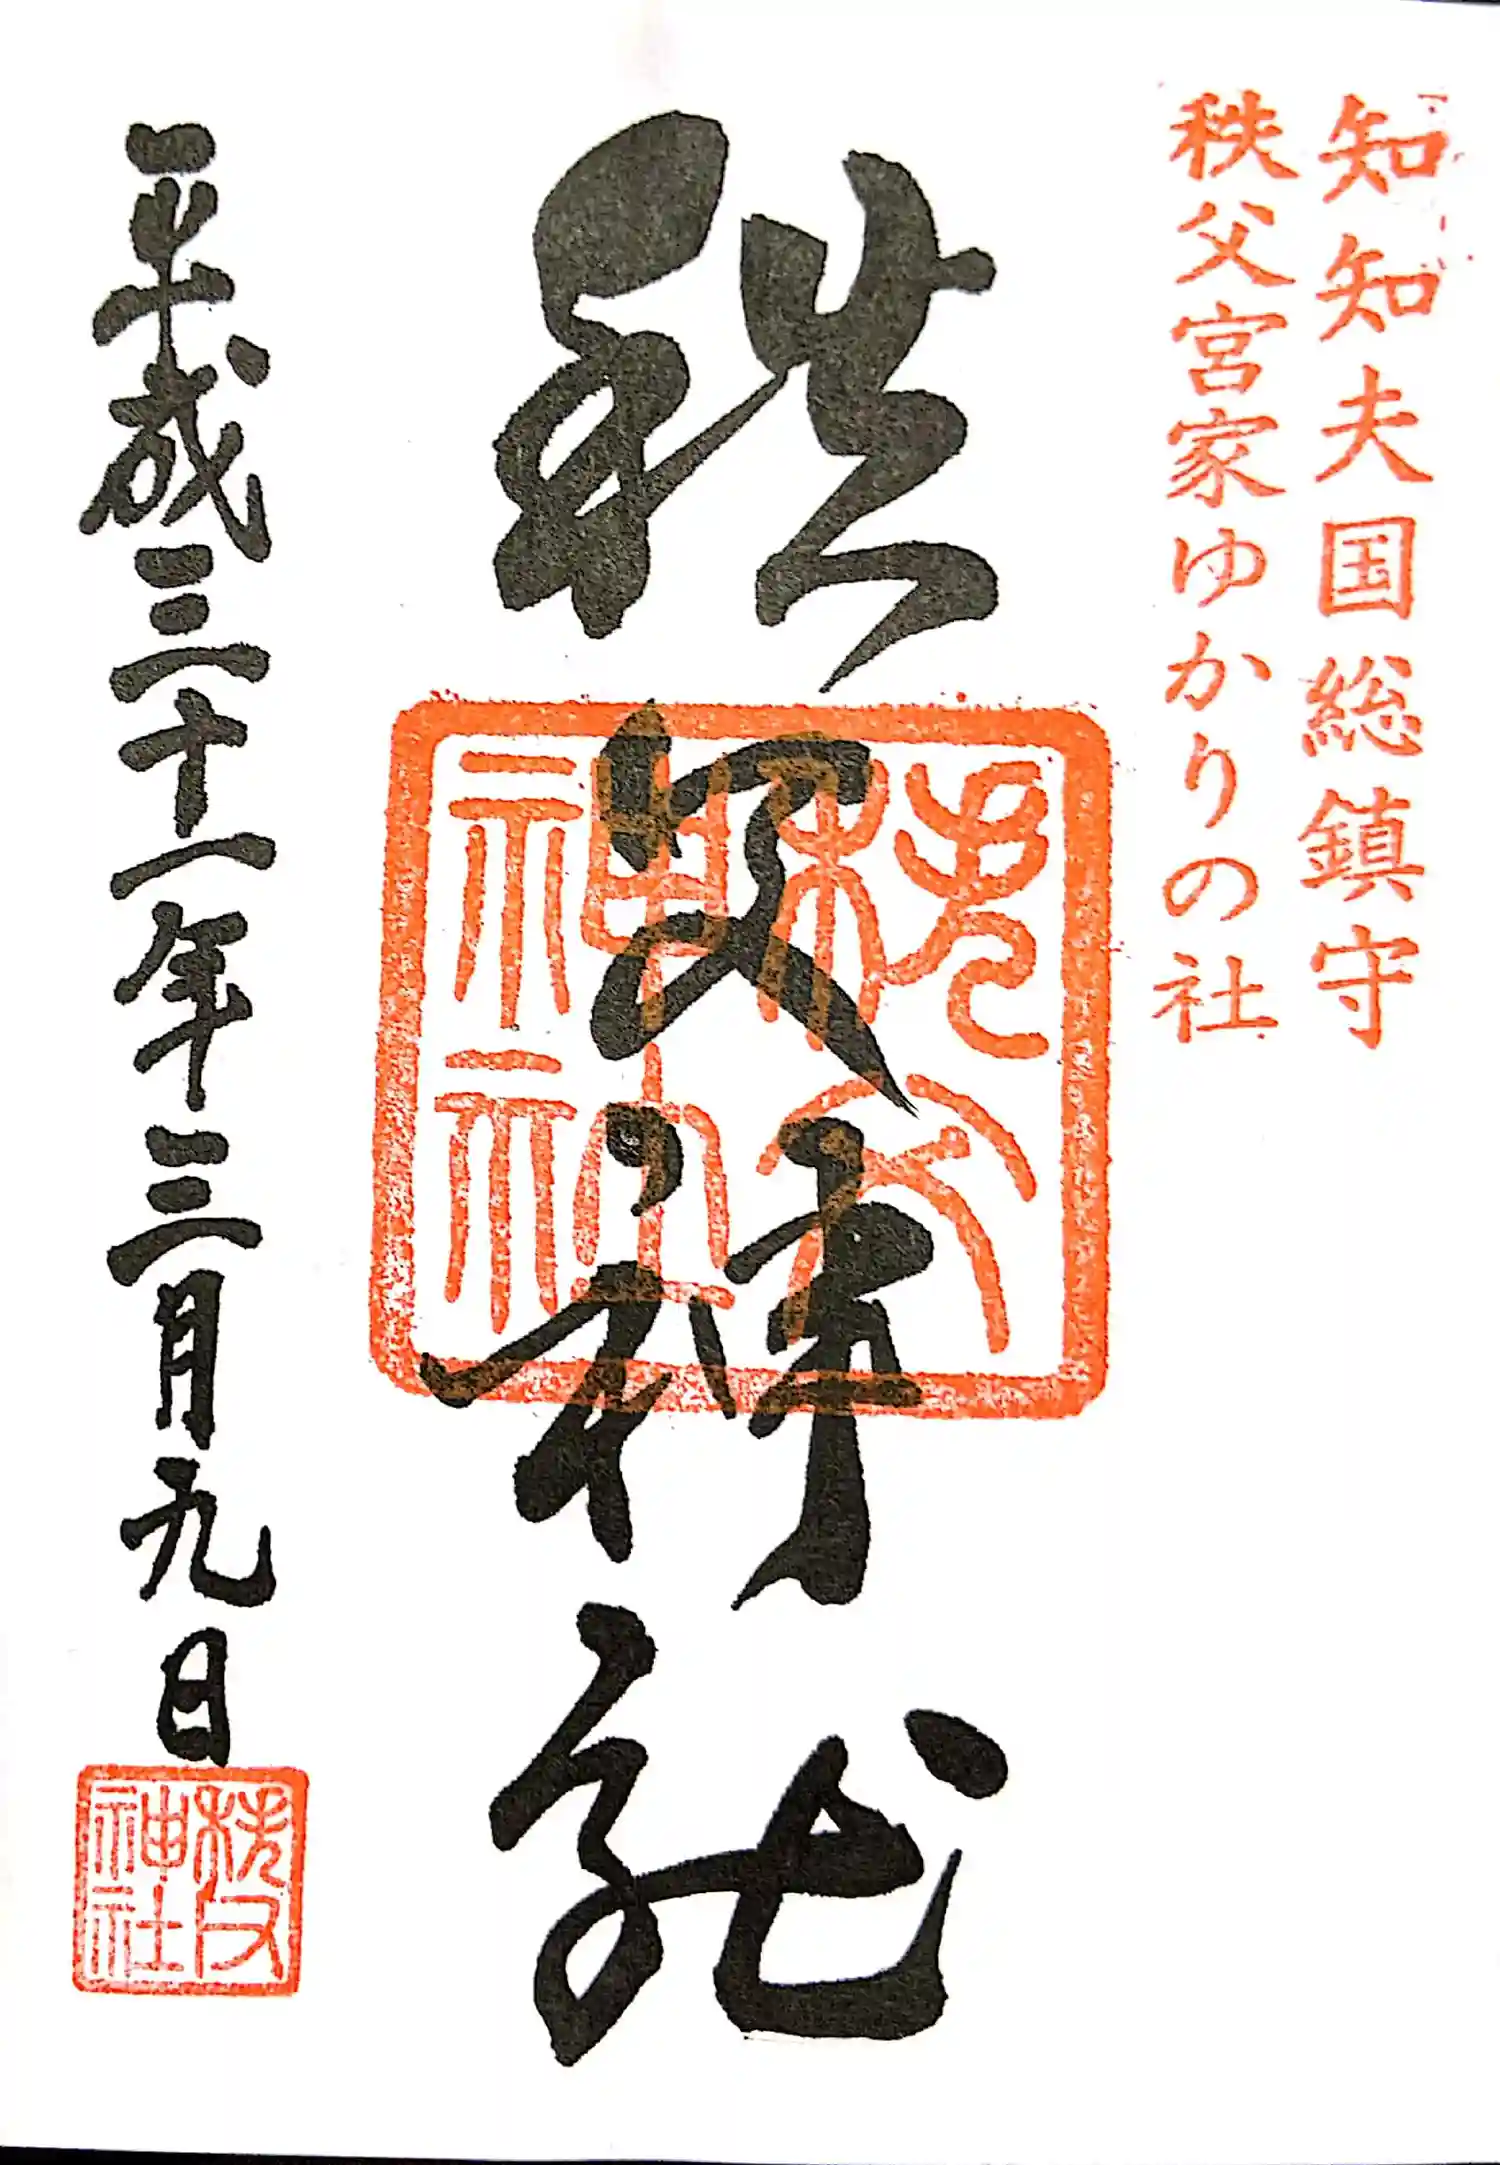 知知夫国総鎮守
秩父宮家ゆかりの社
秩父神社
平成三十一年三月九日
秩父神社
秩父神社